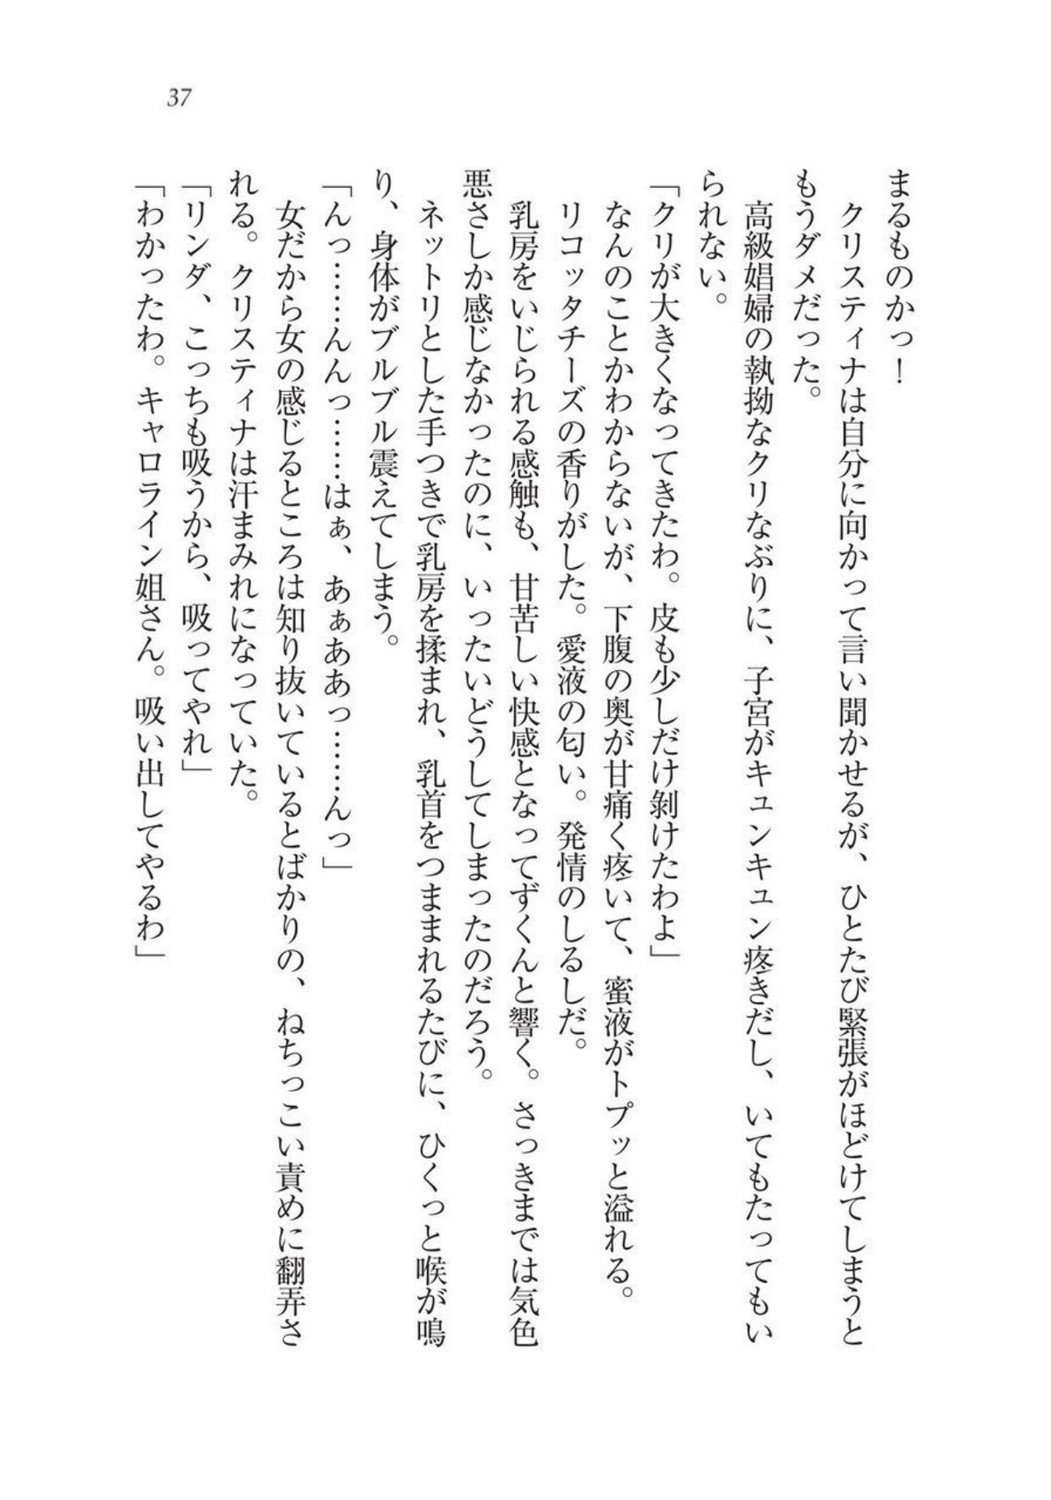 37
まるものかっ！
　クリスティナは自分に向かって言い聞かせるが、ひとたび緊張がほどけてしまうと
もうダメだった。
　高級娼婦の執拗なクリなぶりに、子宮がキュンキュン疼きだし、いてもたってもい
られない。
「クリが大きくなってきたわ。皮も少しだけ剥けたわよ」
　なんのことかわからないが、下腹の奥が甘痛く疼いて、蜜液がトプッと溢れる。
　リコッタチーズの香りがした。愛液の匂い。発情のしるしだ。
　乳房をいじられる感触も、甘苦しい快感となってずくんと響く。さっきまでは気色
悪さしか感じなかったのに、いったいどうしてしまったのだろう。
　ネットリとした手つきで乳房を揉まれ、乳首をつままれるたびに、ひくっと喉が鳴
り、身体がブルブル震えてしまう。
「んっ………んんっ……はぁ、あぁああっ……んっ」
　女だから女の感じるところは知り抜いているとばかりの、ねちっこい責めに翻弄さ
れる。クリスティナは汗まみれになっていた。
「リンダ、こっちも吸うから、吸ってやれ」
「わかったわ。キャロライン姐さん。吸い出してやるわ」